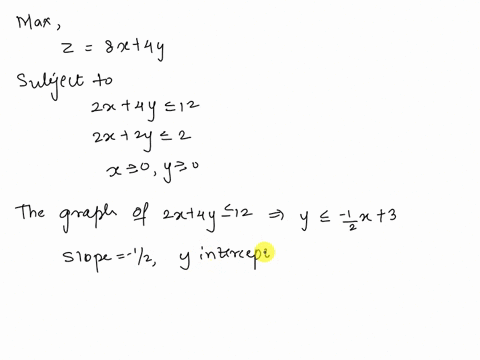 Max,
Z = 8x+4y
Subject to
2x+4y ≤ 12
2x+2y ≤ 2
x ≥ 0, y ≥ 0
The graph of 2x+4y ≤ 12 ⇒ y ≤ -1/2 x + 3
Slope = -1/2, y intercep